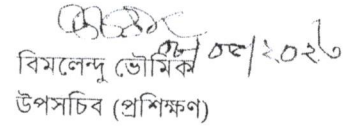 ০৮/০৮/২০২৬
বিমলেন্দু ভৌমিক
উপসচিব (প্রশিক্ষণ)